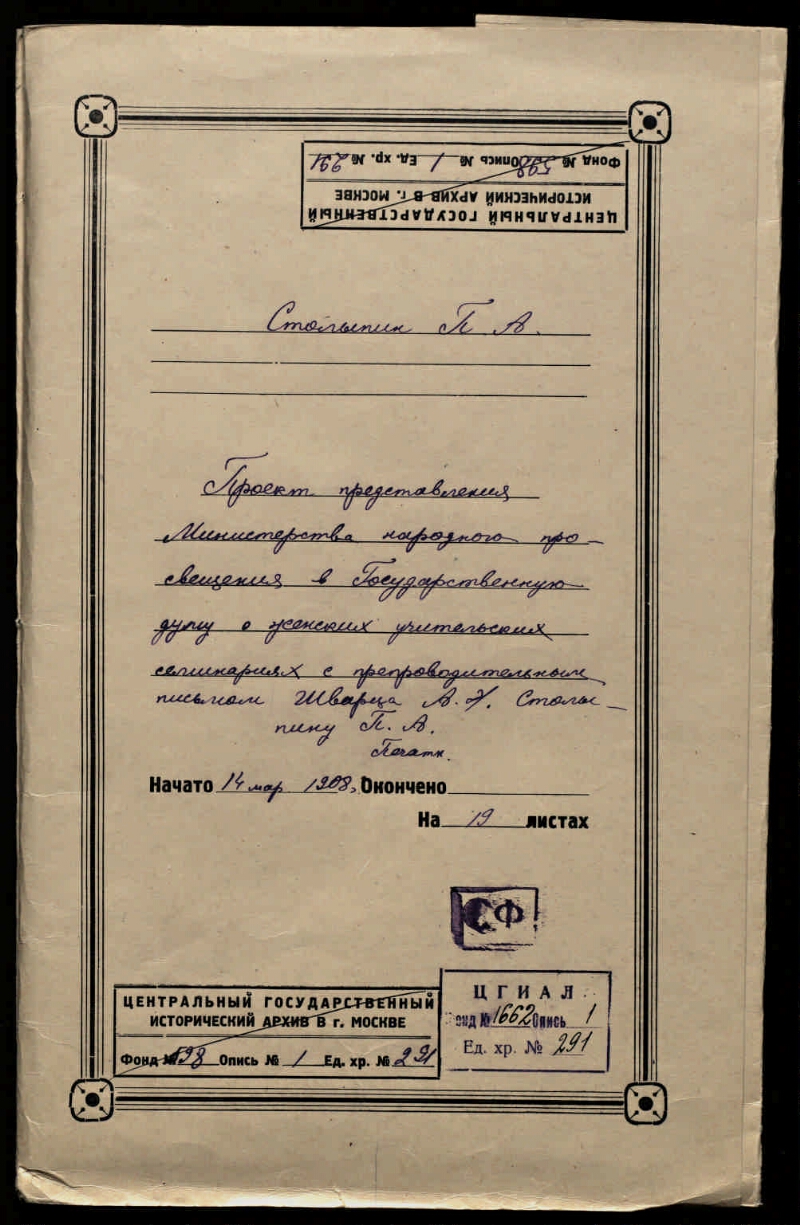 ЦЕНТРАЛЬНЫЙ ГОСУДАРСТВЕННЫЙ
ИСТОРИЧЕСКИЙ АРХИВ В г. МОСКВЕ
Фонд № 598 Опись № 1 Ед. хр. № 291
Столыпин П А.
Проект представления
Министерства народного про
свещения в Государственную
думу о женских учительских
семинариях с препроводительным
письмом Шварца А. Н. Столы
пину П. А.
Печатн.
Начато 14 мар 1908, Окончено
На 19 листах
СФ
ЦЕНТРАЛЬНЫЙ ГОСУДАРСТВЕННЫЙ
ИСТОРИЧЕСКИЙ АРХИВ В г. МОСКВЕ
Фонд № 598 Опись № 1 Ед. хр. № 291
ЦГИАЛ
Фонд № 1662 Опись 1
Ед. хр. № 291